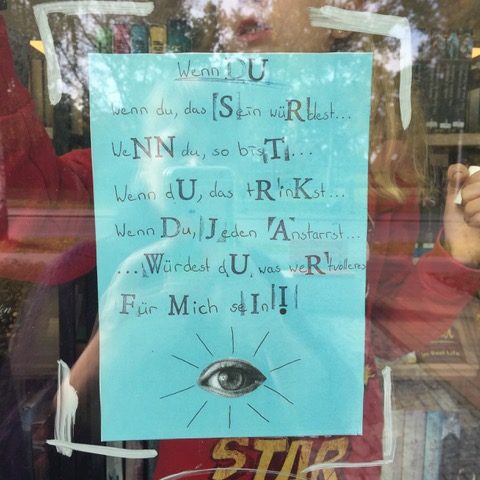 Wenn DU
wenn du, das Sein wüRdest...
WeNN du, so bisT...
Wenn dU, das tRinKst...
Wenn Du, Jeden Anstarrst...
...Würdest dU, was weRtvolleres
Für Mich seIn!
STAR